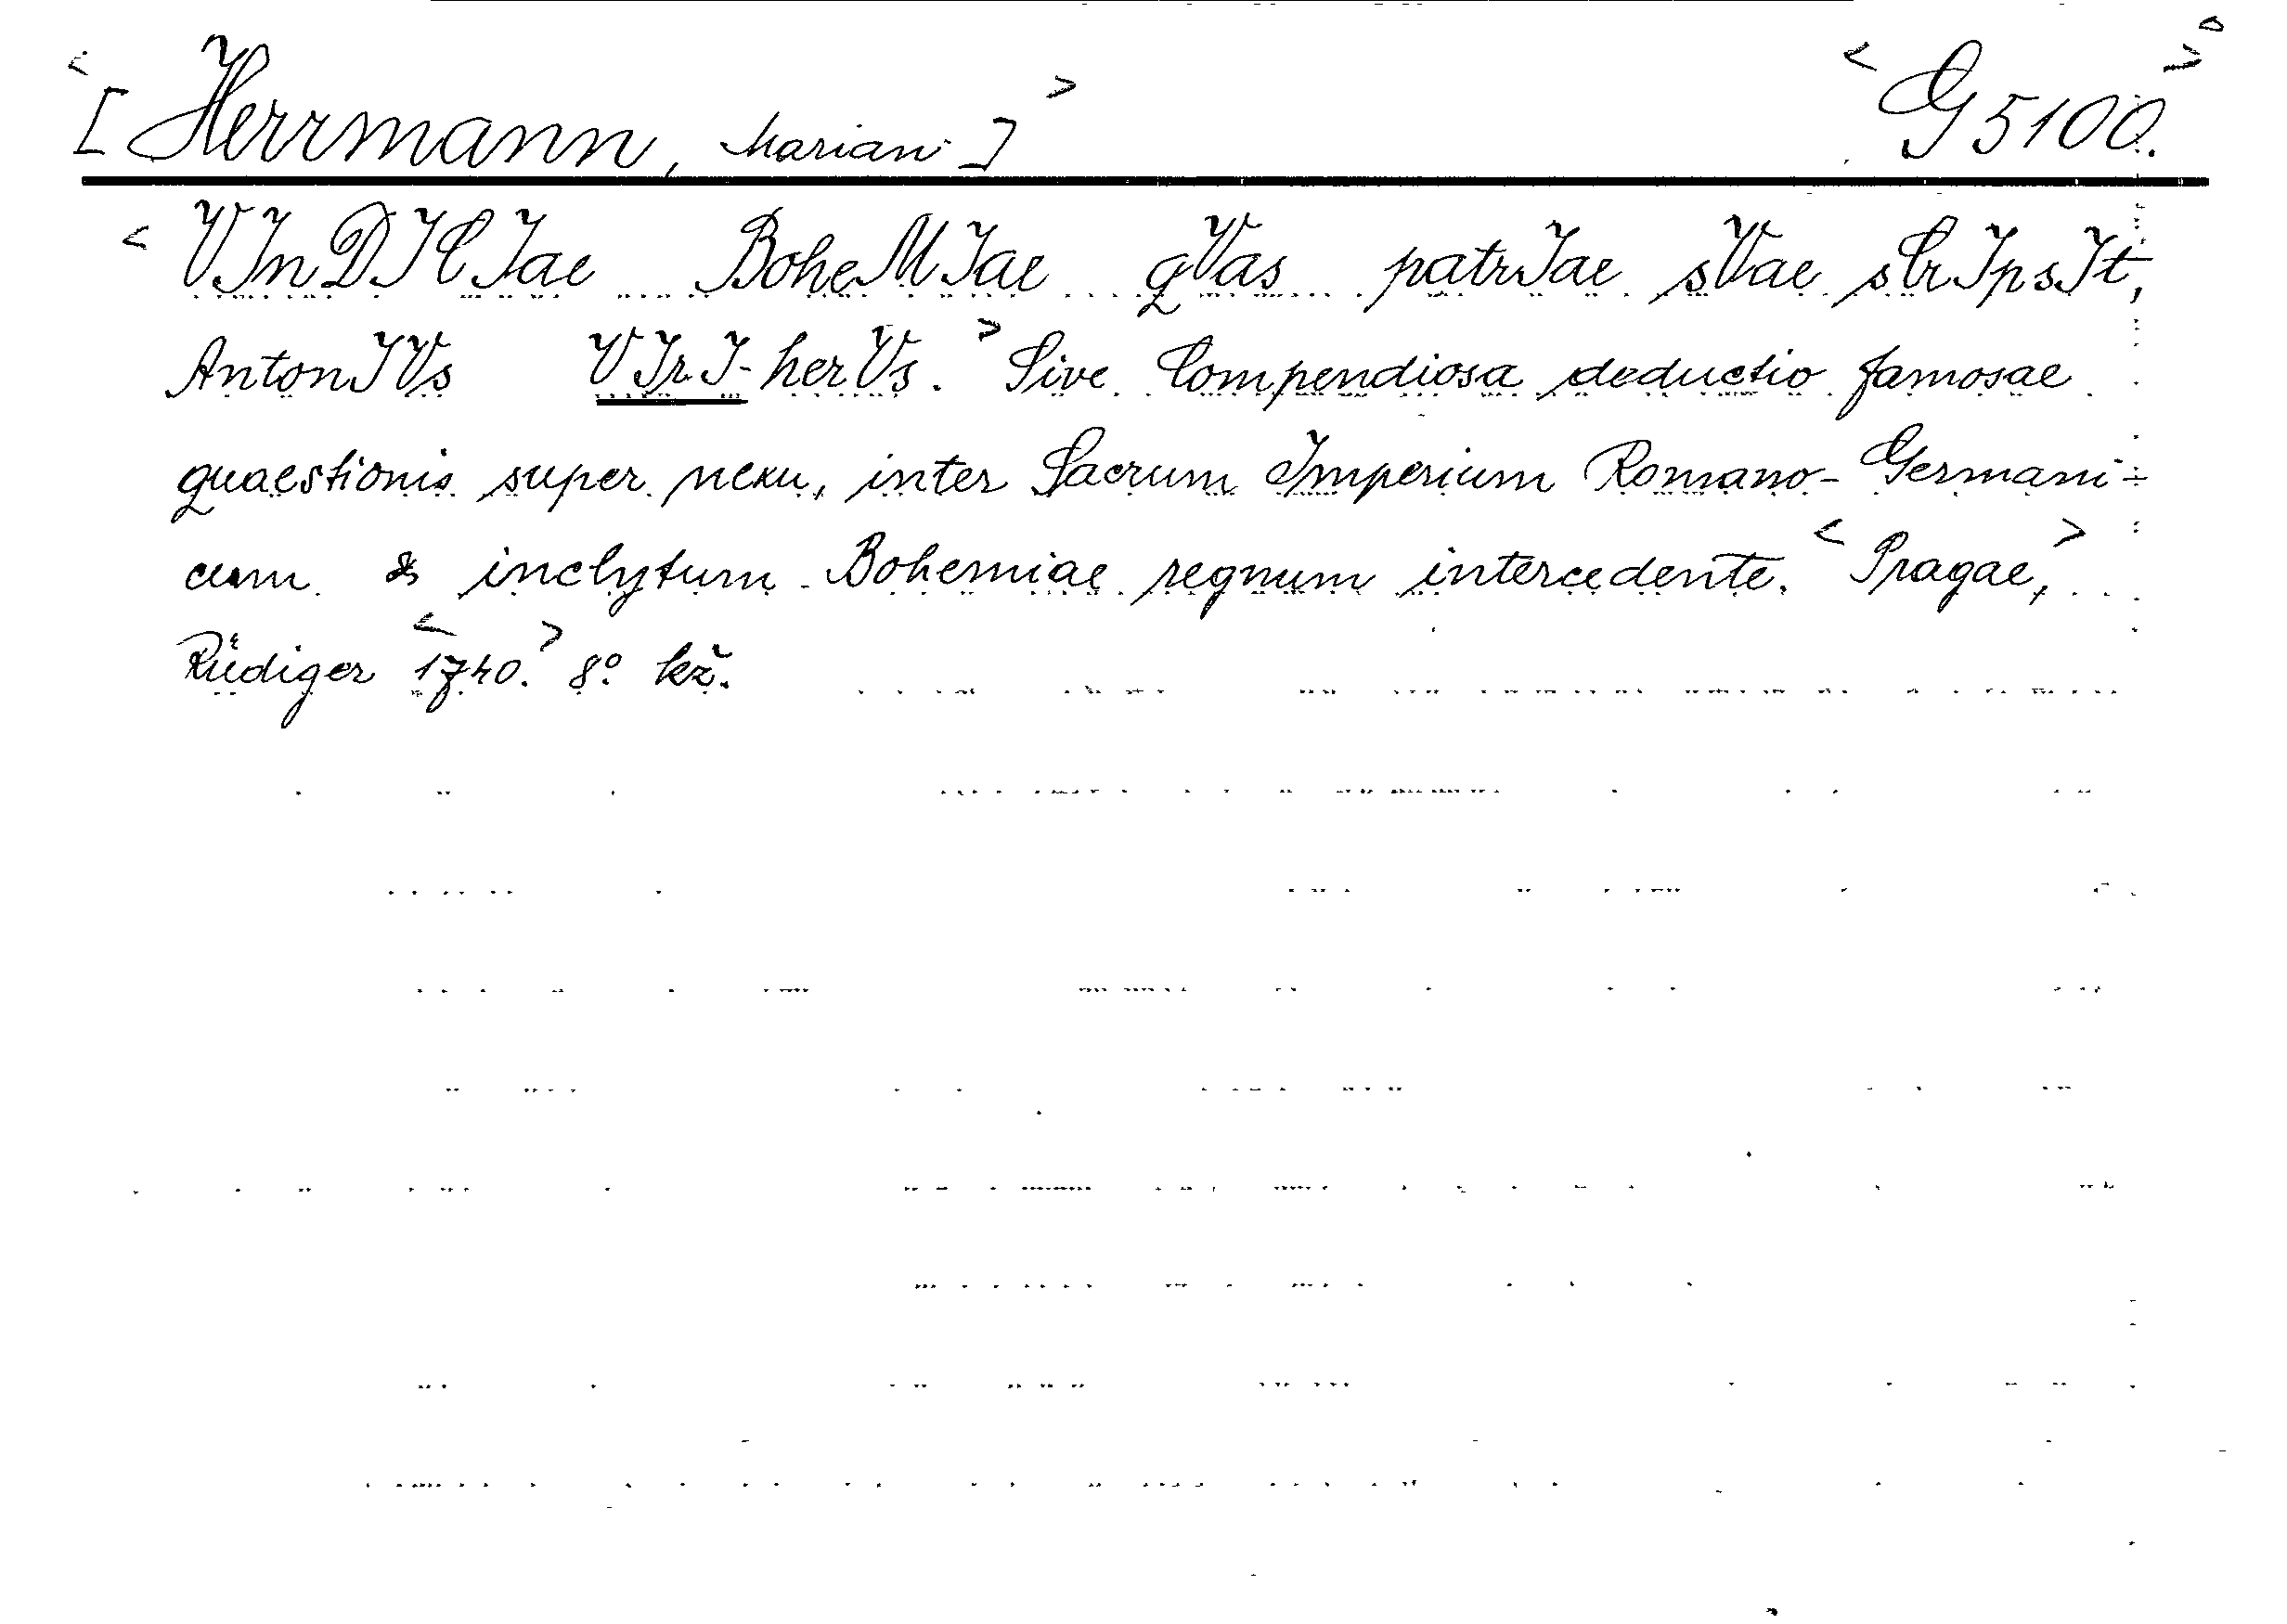 <[Herrmann, Marian]> <G 5100.>
<VInDICIae BoheMIae qVas patrIae sVae sCrIpsIt,
AntonIVs VIrI-herVs.> Sive Compendiosa deductio famosae
quaestionis super nexu, inter Sacrum Imperium Romano-Germani-
cum & inclytum Bohemiae regnum intercedente. <Pragae,>
Rüdiger <1740.> 8° kž.